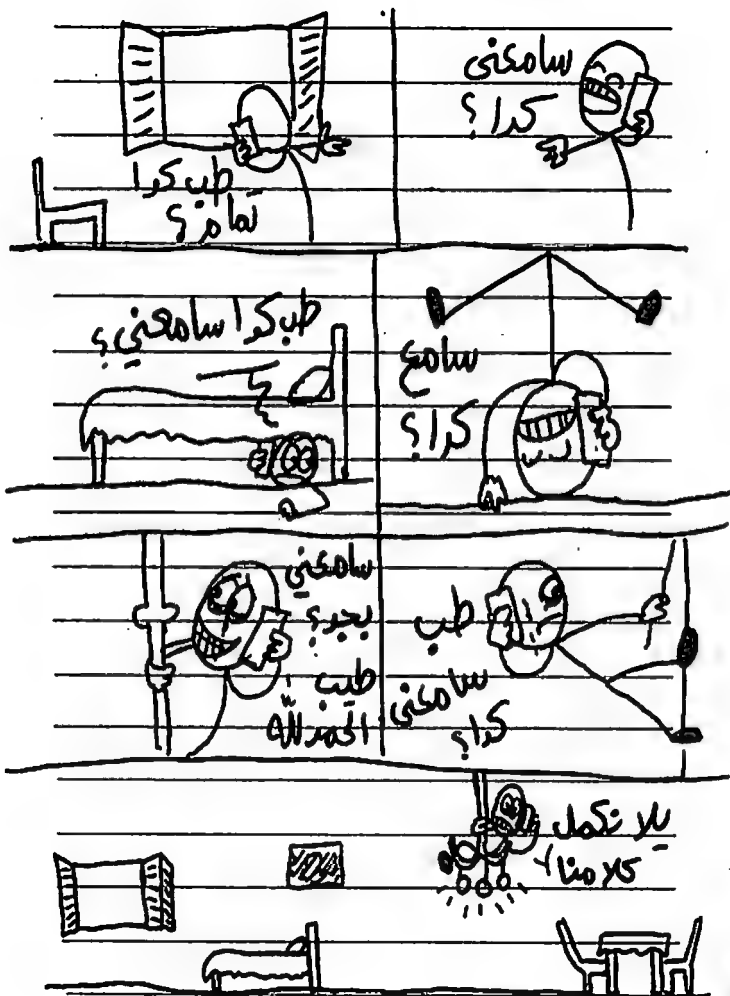 سامعنى
كدا؟
طب كدا
تمام؟
سامع
كدا؟
طب كدا سامعني؟
طب
سامعنى
كدا؟
سامعني
بجد؟
طيب
الحمد للّه
يلا نكمل
كلامنا